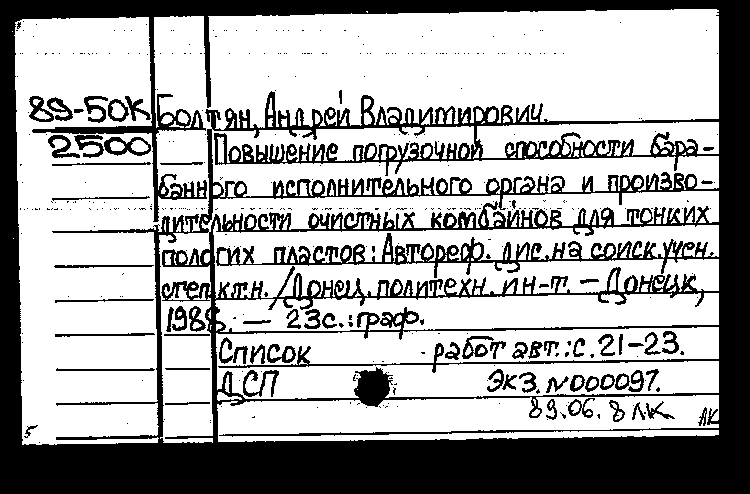 89-50К Болтян, Андрей Владимирович.
2500 Повышение погрузочной способности бара-
банного исполнительного органа и произво-
дительности очистных комбайнов для тонких
пологих пластов: Автореф. дис. на соиск. учен.
степ. к.т.н. / Донец. политехн. ин-т. — Донецк,
1988. — 23с.: граф.
Список работ авт.: с. 21-23.
ДСП Экз. №000097.
89.06. 8 ЛК АК
5